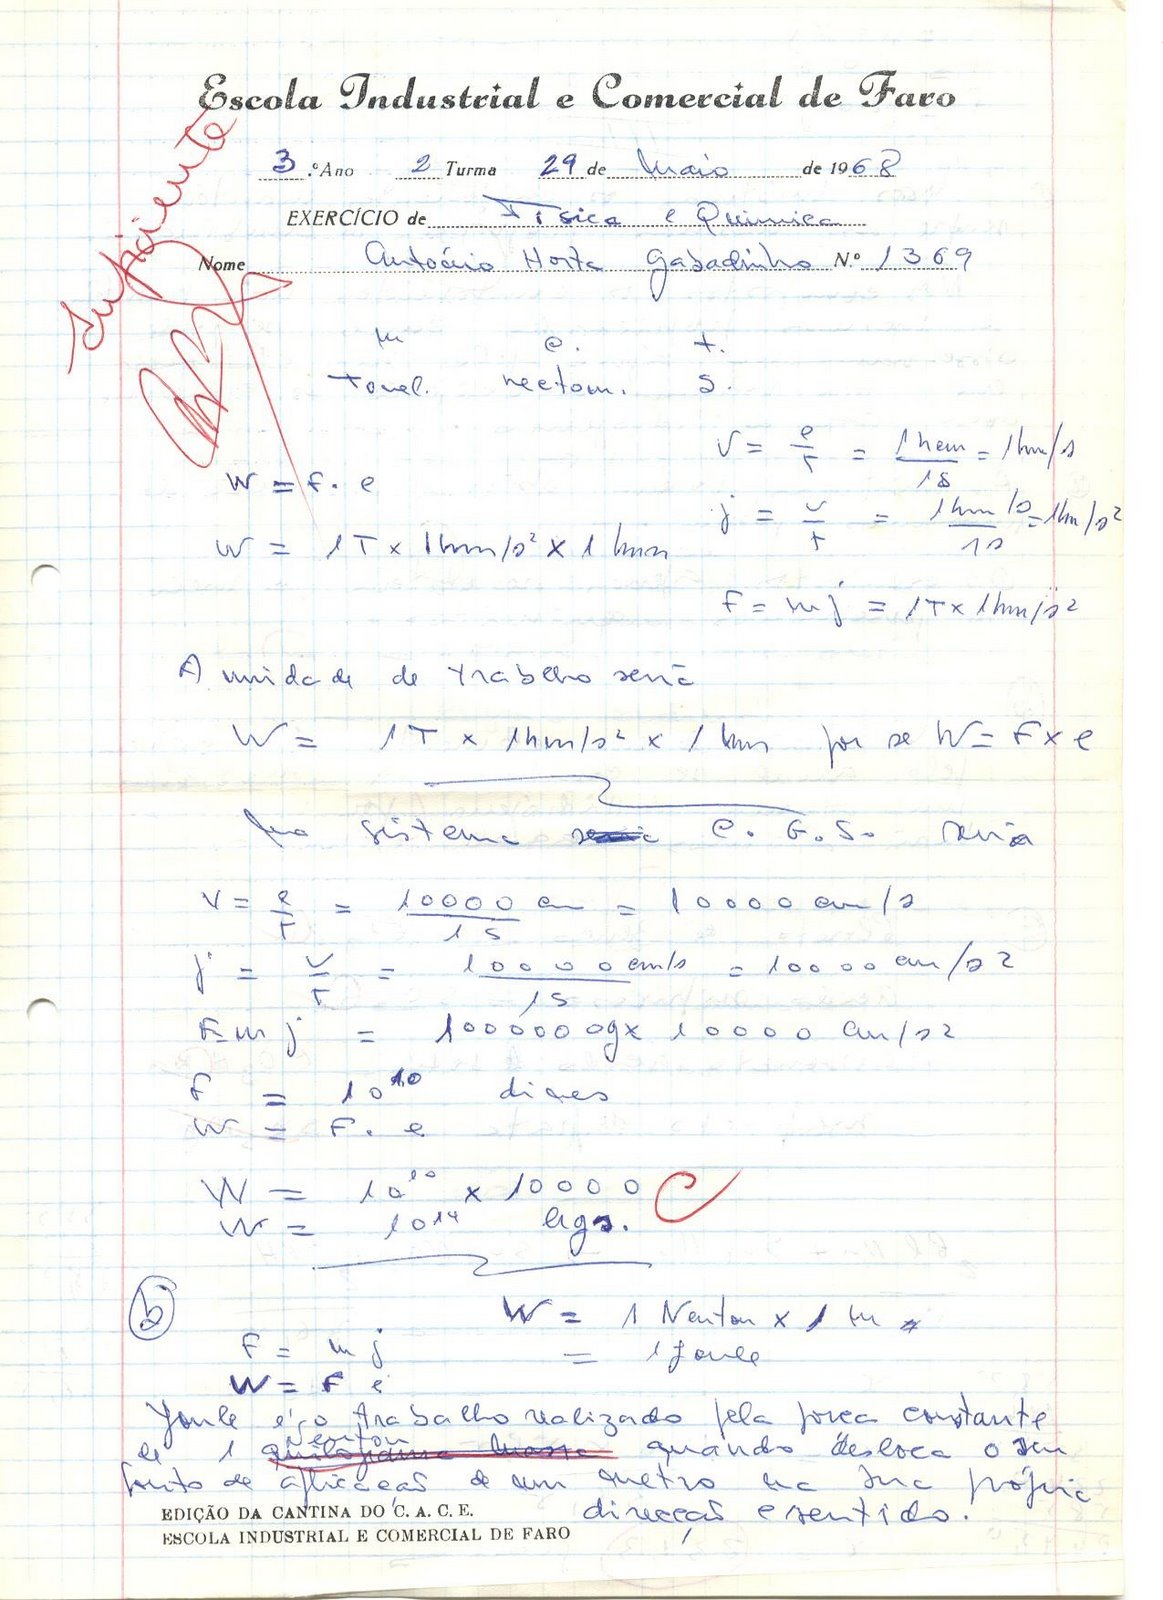 Escola Industrial e Comercial de Faro
3.º Ano 2 Turma 29 de Maio de 1968
EXERCÍCIO de Física e Química
Suficiente
Nome António Horta Gabadinho N.º 1369
m e. t.
tonel. hectom. s.
V = e/t = 1 hem/1s = 1hm/s
W = F. e
j = v/t = 1hm/s/1s = 1hm/s²
W = 1T x 1hm/s² x 1 hm
F = mj = 1T x 1hm/s²
A unidade de trabalho será
W = 1T x 1hm/s² x 1 hm por se W = F x e
No sistema C. G. S. seria
V = e/t = 10000 cm/1s = 10000 cm/s
j = v/t = 10000 cm/s/1s = 10000 cm/s2
F=m j = 1000000gx 10000 cm/s2
F = 10¹⁰ dines
W = F. e
W = 10¹⁰ x 10000 C
W = 10¹⁴ ergs.
b W = 1 Newton x 1 m
F = m j = 1 Joule
W = F e
Joule é o trabalho realizado pela força constante
de 1 Newton quando desloca o seu
ponto de aplicação de um metro na sua própria
direcção e sentido.
EDIÇÃO DA CANTINA DO C. A. C. E.
ESCOLA INDUSTRIAL E COMERCIAL DE FARO